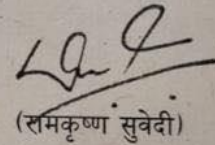 (रामकृष्ण सुवेदी)